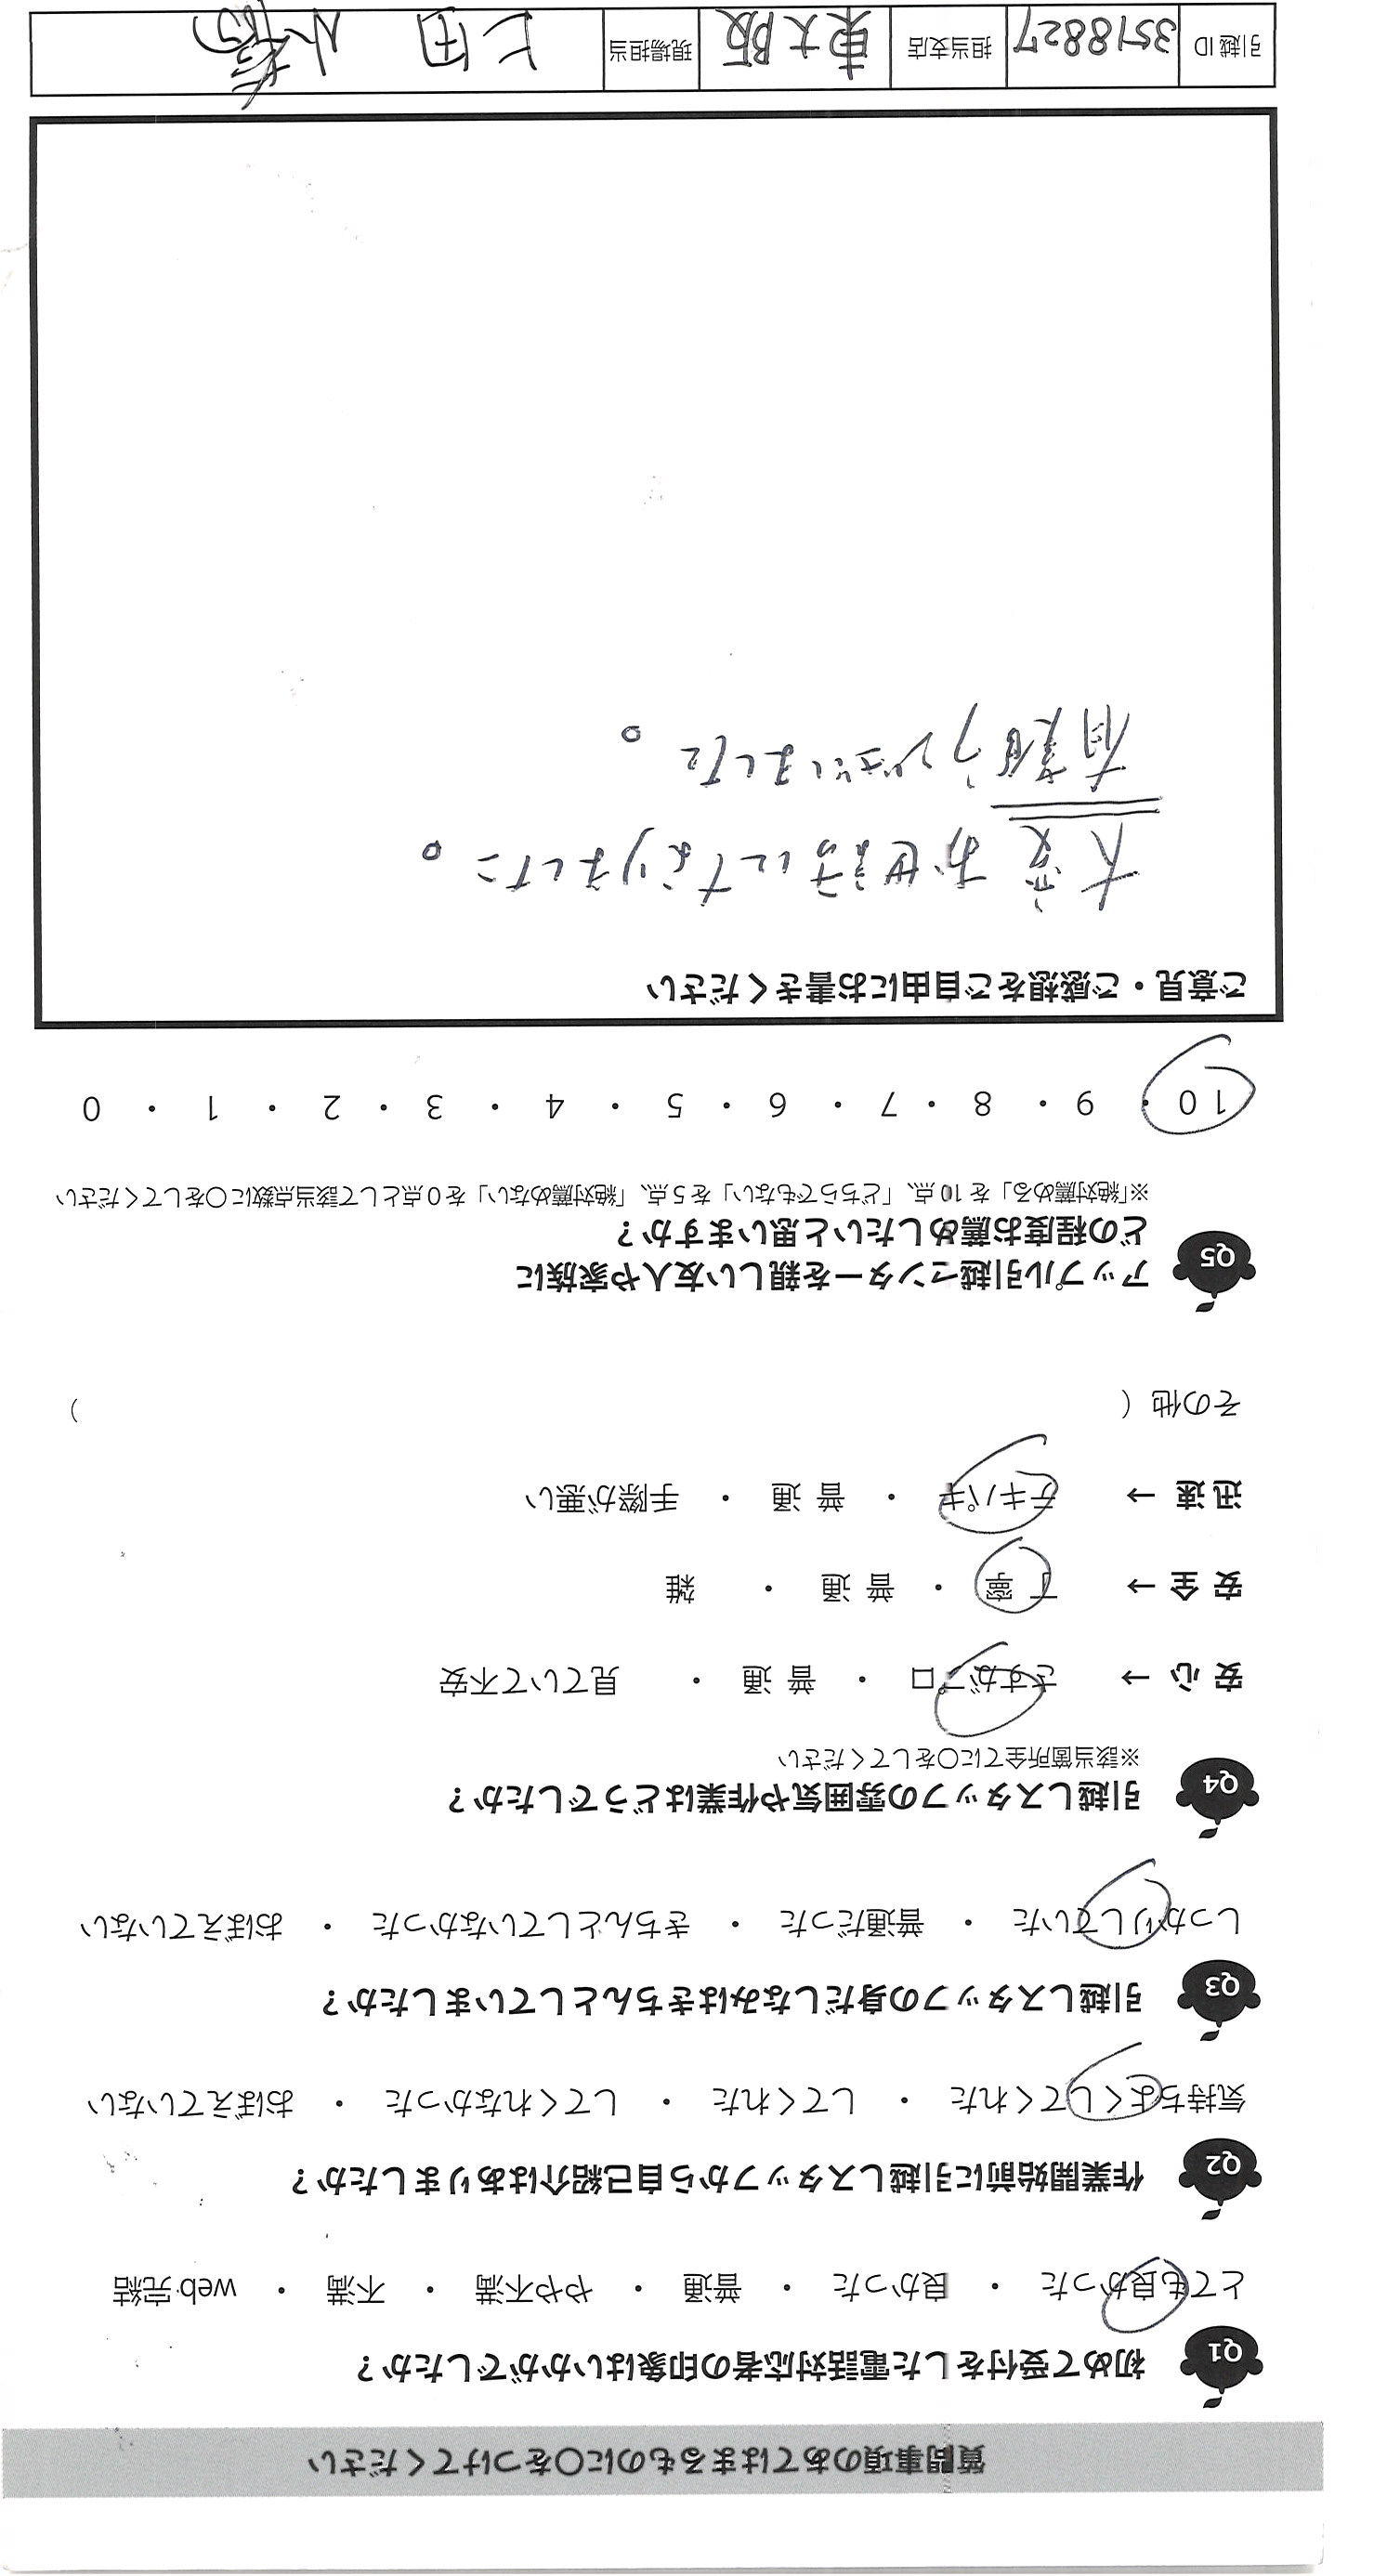 質問事項のあてはまるものに○をつけてください
Q1 初めて受付をした電話対応者の印象はいかがでしたか？
とても良かった ・ 良かった ・ 普通 ・ やや不満 ・ 不満 ・ web完結
Q2 作業開始前に引越しスタッフから自己紹介はありましたか？
気持ちよくしてくれた ・ してくれた ・ してくれなかった ・ おぼえていない
Q3 引越しスタッフの身だしなみはきちんとしていましたか？
しっかりしていた ・ 普通だった ・ きちんとしていなかった ・ おぼえていない
Q4 引越しスタッフの雰囲気や作業はどうでしたか？
※該当箇所全てに○をしてください
安心 → さすがプロ ・ 普通 ・ 見ていて不安
安全 → 丁寧 ・ 普通 ・ 雑
迅速 → テキパキ ・ 普通 ・ 手際が悪い
その他（ ）
Q5 アップル引越センターを親しい友人や家族に
どの程度お薦めしたいと思いますか？
※「絶対薦める」を10点、「どちらでもない」を5点、「絶対薦めない」を0点として該当点数に○をしてください
10 ・ 9 ・ 8 ・ 7 ・ 6 ・ 5 ・ 4 ・ 3 ・ 2 ・ 1 ・ 0
ご意見・ご感想をご自由にお書きください
大変お世話になりました。
有難うございました。
引越ID 3518827 担当支店 東大阪 現場担当 上田 小